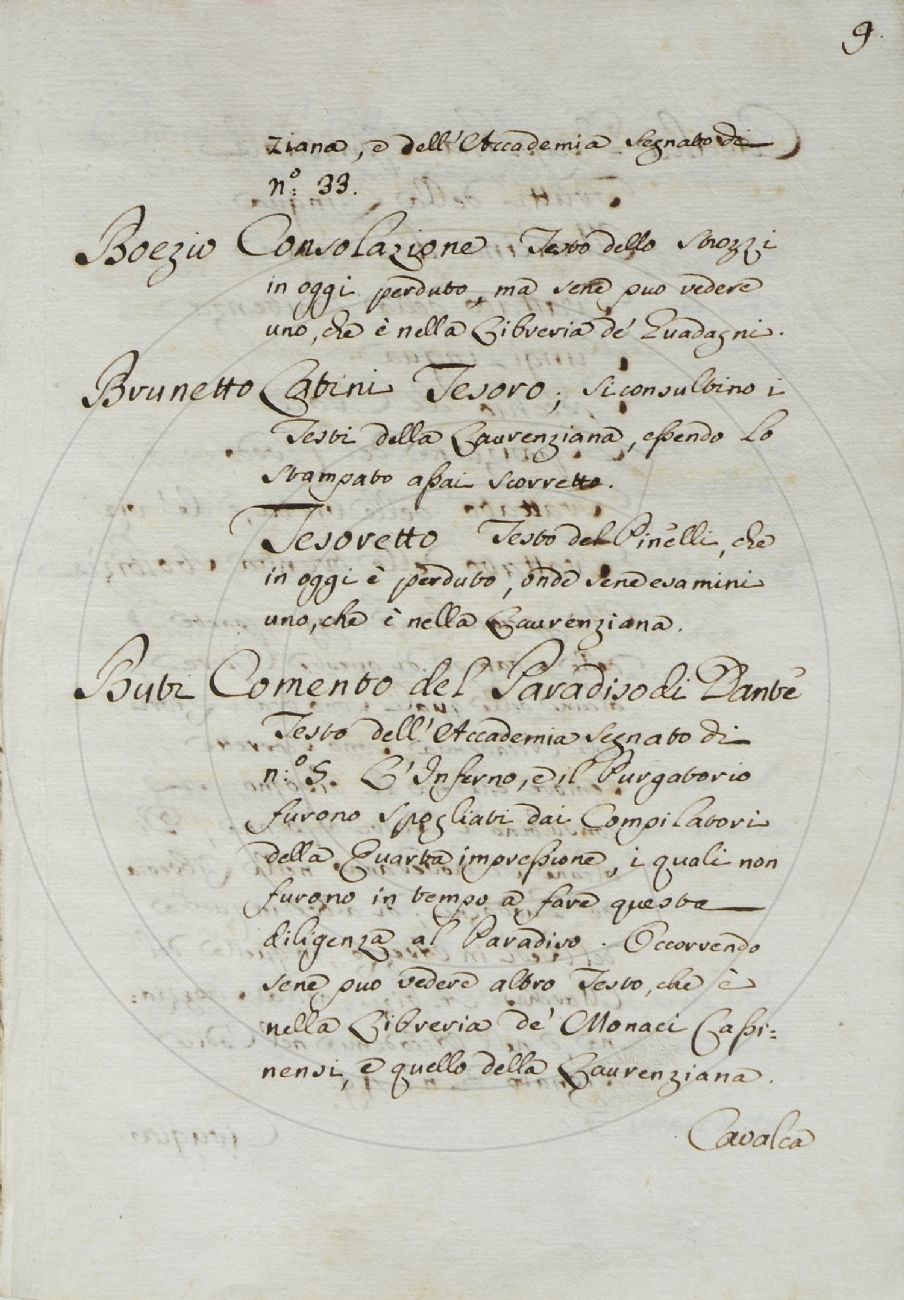 9.
ziana, e dell'Accademia segnato di
n.º 33.
Boezio Consolazione Testo dello Strozzi
in oggi perduto, ma sene può vedere
uno, che è nella Libreria de' Guadagni.
Brunetto Latini Tesoro; si consultino i
Testi della Laurenziana, essendo lo
stampato assai scorretto.
Tesoretto Testo del Pinelli, che
in oggi è perduto, onde sene esamini
uno, che è nella Laurenziana.
Buti Comento del Paradiso di Dante
Testo dell'Accademia segnato di
n.º 5. L'Inferno, e il Purgatorio
furono spogliati dai Compilatori
della Quarta impressione, i quali non
furono in tempo a fare questa
diligenza al Paradiso. Occorrendo
sene può vedere altro Testo, che è
nella Libreria de' Monaci Cassi=
nensi, e quello della Laurenziana.
Cavalca